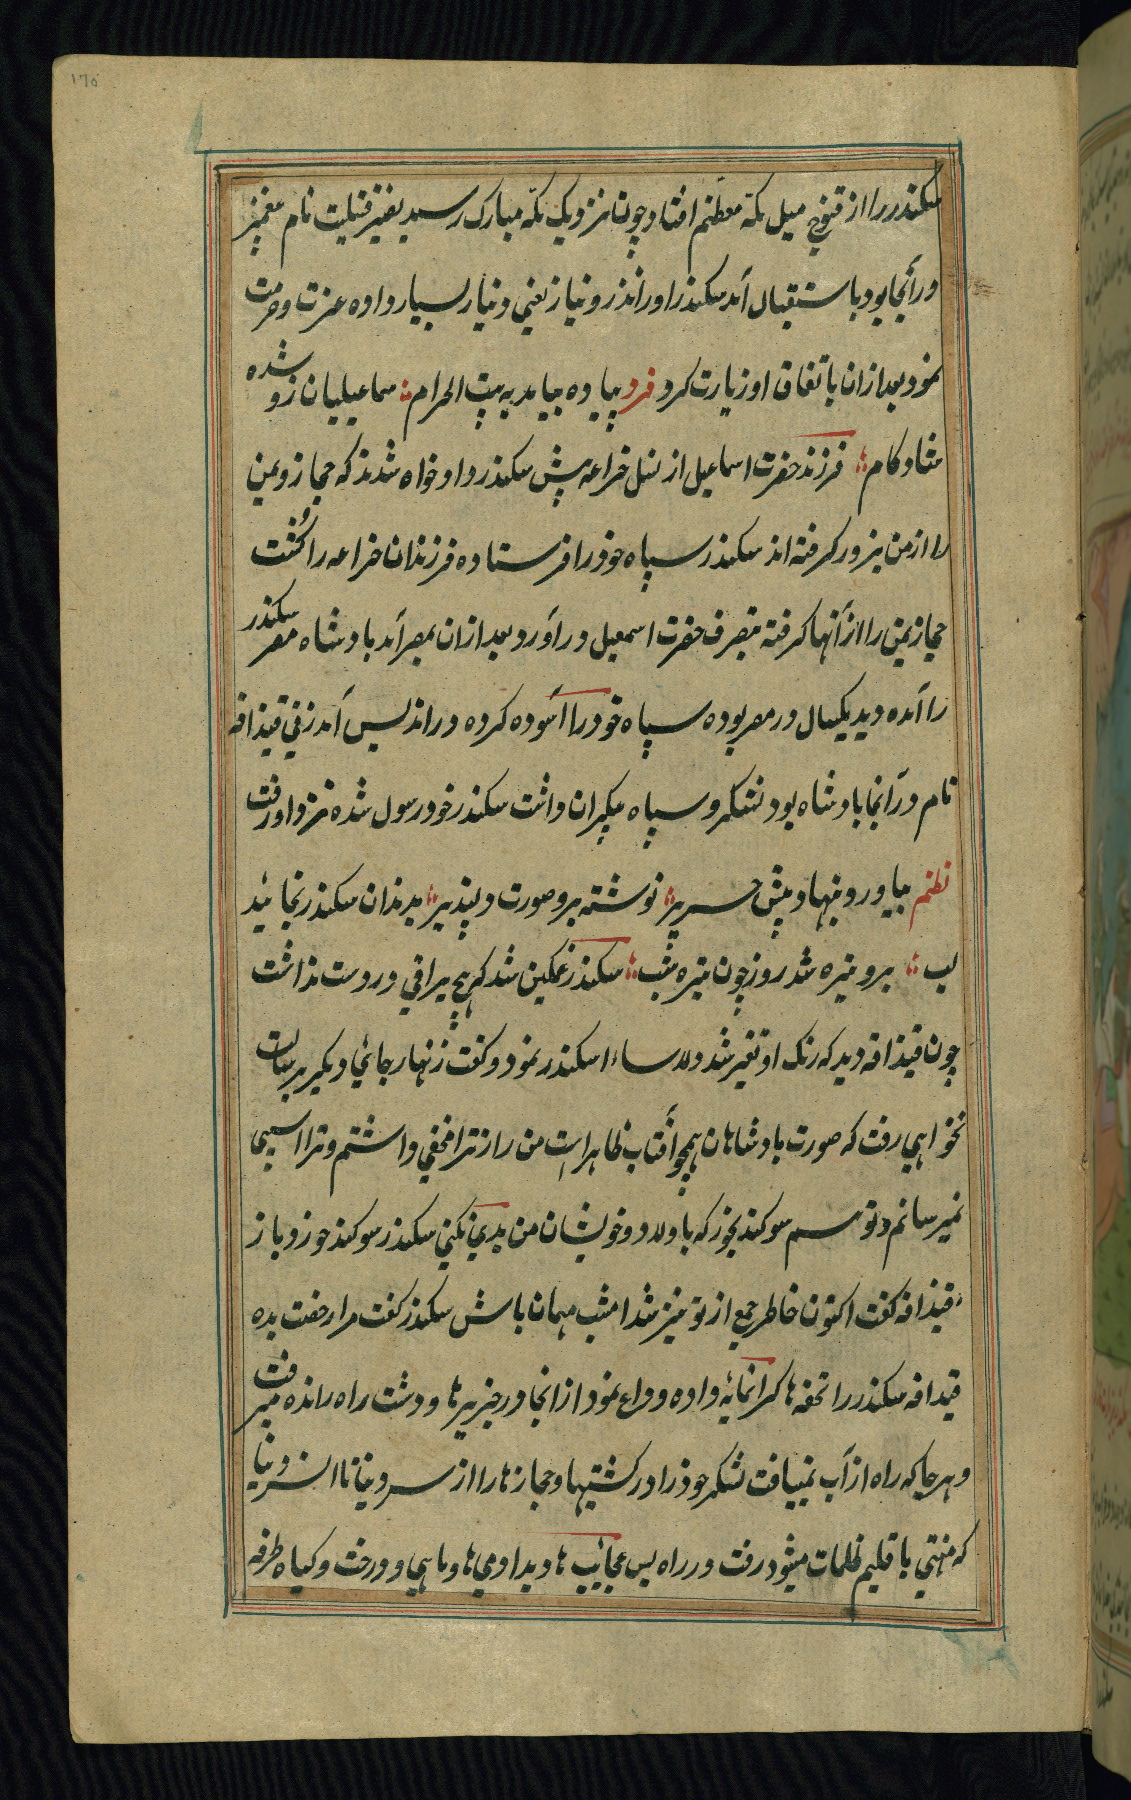 ١٦٥
سکندر را از قنوج میل مکّه معظّم افتاد چون نزدیک مکّه مبارک رسید نام
در آنجا بود باستقبال آمد سکندر او را نذر و نیاز یعنی دنیار بسیار داده عزت و حرمت
نمود بعد ازان باتفاق او زیارت کرد فرد پیاده بیامد به بیت الحرام ؞ سماعیلیان زو شده
شادکام ؞ فرزند حضرت اسماعیل از نسل خزاعه پیش سکندر دادخواه شدند که حجاز و یمن
را از من بزور گرفته اند سکندر سپاه خود را فرستاده فرزندان خزاعه را کُشت
حجاز یمن را از آنها گرفته بتصرف حضرت اسمعیل در آورد بعد ازان بمصر آمد بادشاه مصر سکندر
را آمده دید یکسال در مصر بوده سپاه خود را آسوده کرده در اندلس آمد زنی قیذافه
نام در آنجا بادشاه بود لشکر و سپاه بیکران داشت سکندر خود رسول شده نزد او رفت
نظم بیاورد و بنهاد پیش حریر ؞ نوشته برو صورت دلپذیر ؞ بدندان سکندر بخائید
لب ؞ برو تیره شد روز چون تیره شب ؞ سکندر غمگین شد که هیچ یراقی در دست نداشت
چون قیذافه دید که رنک او تغیر شد دلاساء اسکندر نمود و کفت زنهار جائی دیکر برسالت
نخواهی رفت که صورت بادشاهان همچو آفتاب ظاهر است من راز ترا مخفی داشتم و ترا آسیبی
نمیرسانم و تو سوکند بخور که با ولاد و خویشان من بدی نکنی سکندر سوکند خورد باز
قیذافه کفت اکنون خاطر جمع از تو نیز شد امشب مهمان باش سکندر کفت مرا رخصت بده
قیدافه سکندر را تحفه ها کرانمایهٔ داده وداع نمود از انجا در جزیرها و دشت راه رانده میرفت
و هر جا که راه از آب نمییافت لشکر خود را در کشتیها و جهازها را از
که منتهی باقلیم ظلمات میشود رفت در راه بس عجائیب ها دید آدمی ها و ماهی و درخت و کیاه طرفه